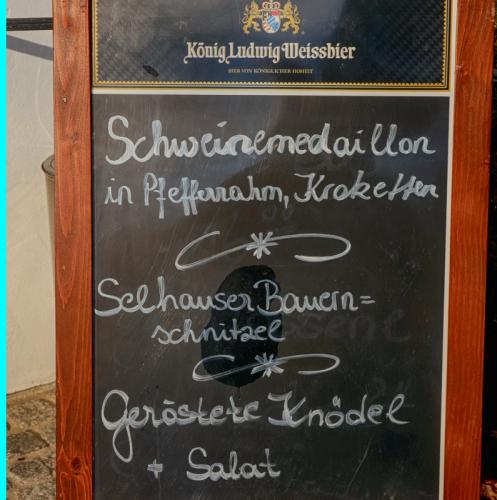 König Ludwig Weissbier
BIER VON KÖNIGLICHER HOHEIT
Schweinemedaillon
in Pfefferrahm, Kroketten
Selhauser Bauern=
schnitzel
Geröstete Knödel
+ Salat